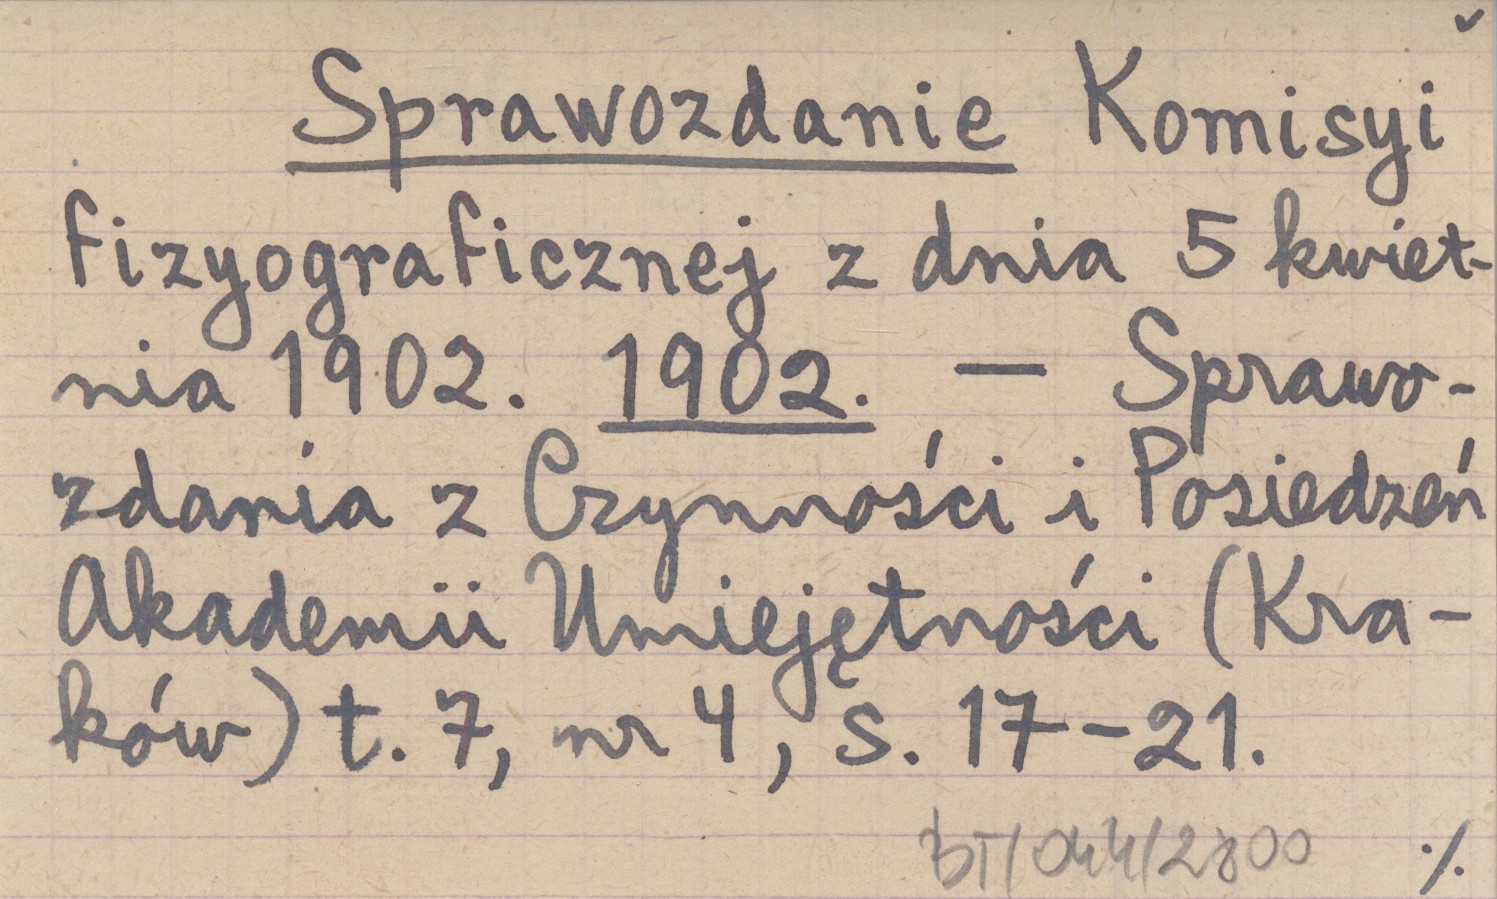 Sprawozdanie Komisyi
fizyograficznej z dnia 5 kwiet-
nia 1902. 1902. — Sprawo-
zdania z Czynności i Posiedzeń
Akademii Umiejętności (Kra-
ków) t. 7, nr 4, s. 17-21.
BT/044/2800
./.